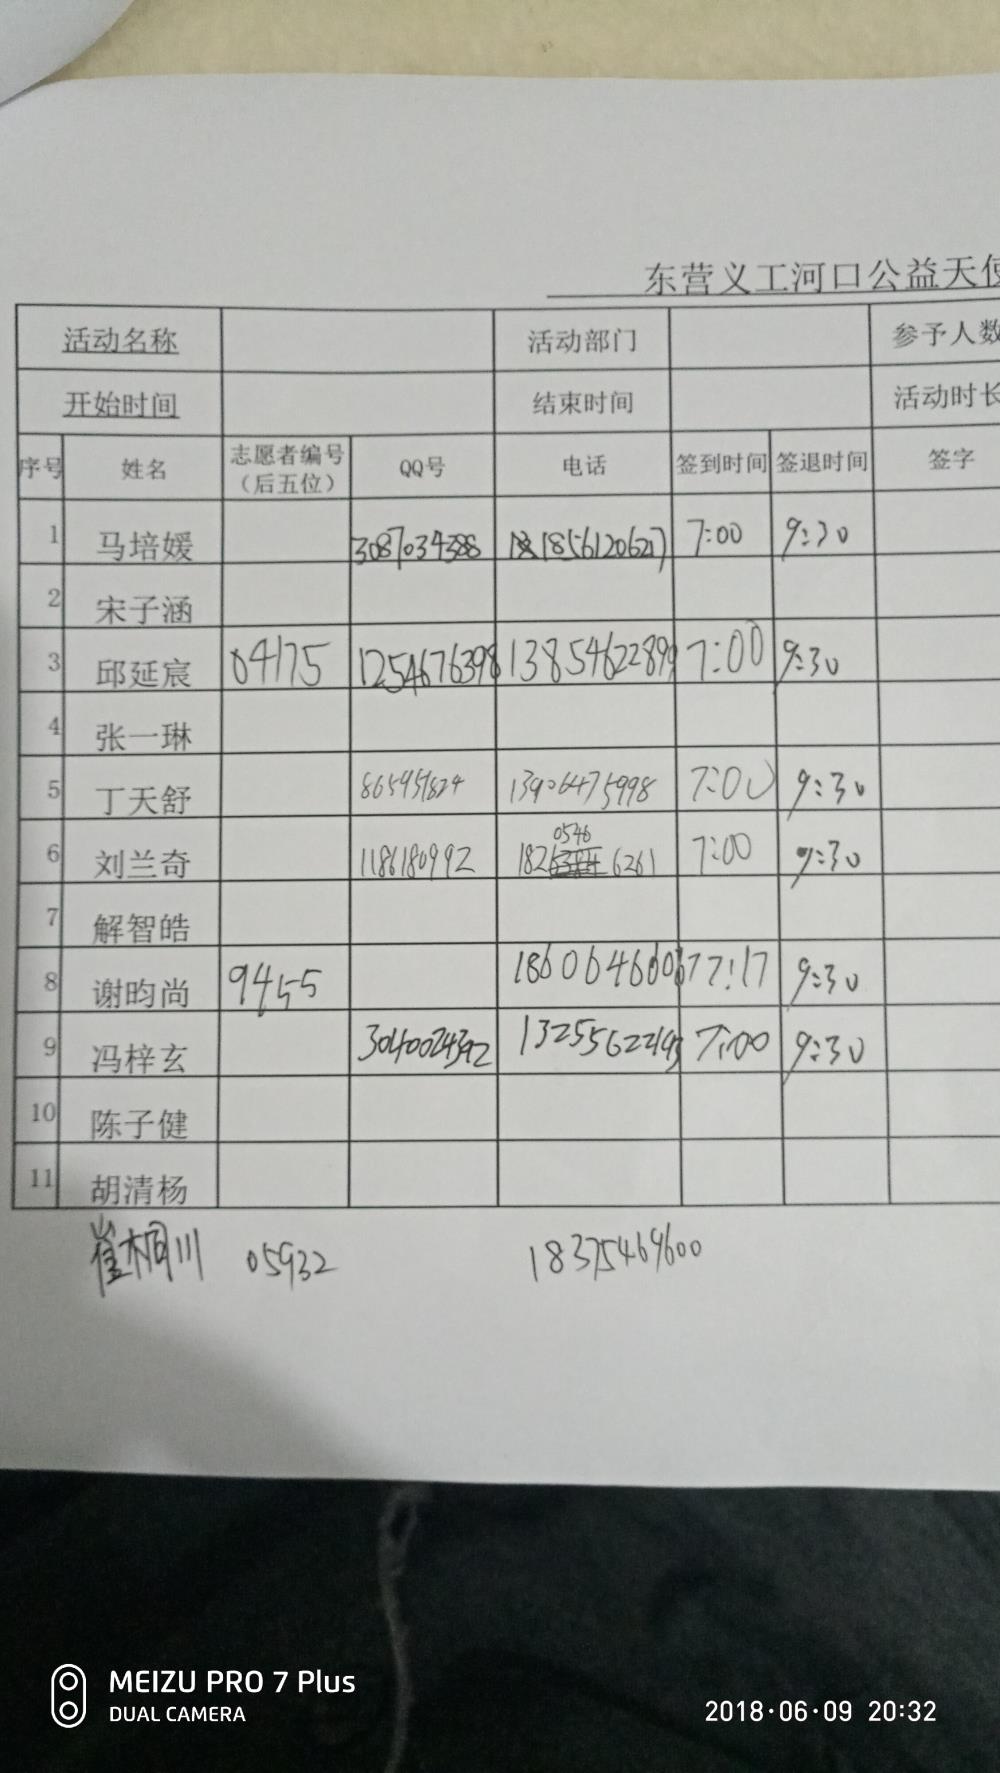 东营义工河口公益天使
活动名称 活动部门 参予人数
开始时间 结束时间 活动时长
序号 姓名 志愿者编号（后五位） QQ号 电话 签到时间 签退时间 签字
1 马培媛 3087034388 18561206217 7:00 9:30
2 宋子涵
3 邱延宸 04175 1254676398 13854622899 7:00 9:30
4 张一琳
5 丁天舒 865951824 13906475998 7:00 9:30
6 刘兰奇 1186180992 18205466261 7:00 9:30
7 解智皓
8 谢昀尚 9455 7:17 9:30
9 冯梓玄 3040024392 13255622193 7:00 9:30
10 陈子健
11 胡清杨
崔桐川 05932 18375469600
MEIZU PRO 7 Plus
DUAL CAMERA
2018·06·09 20:32